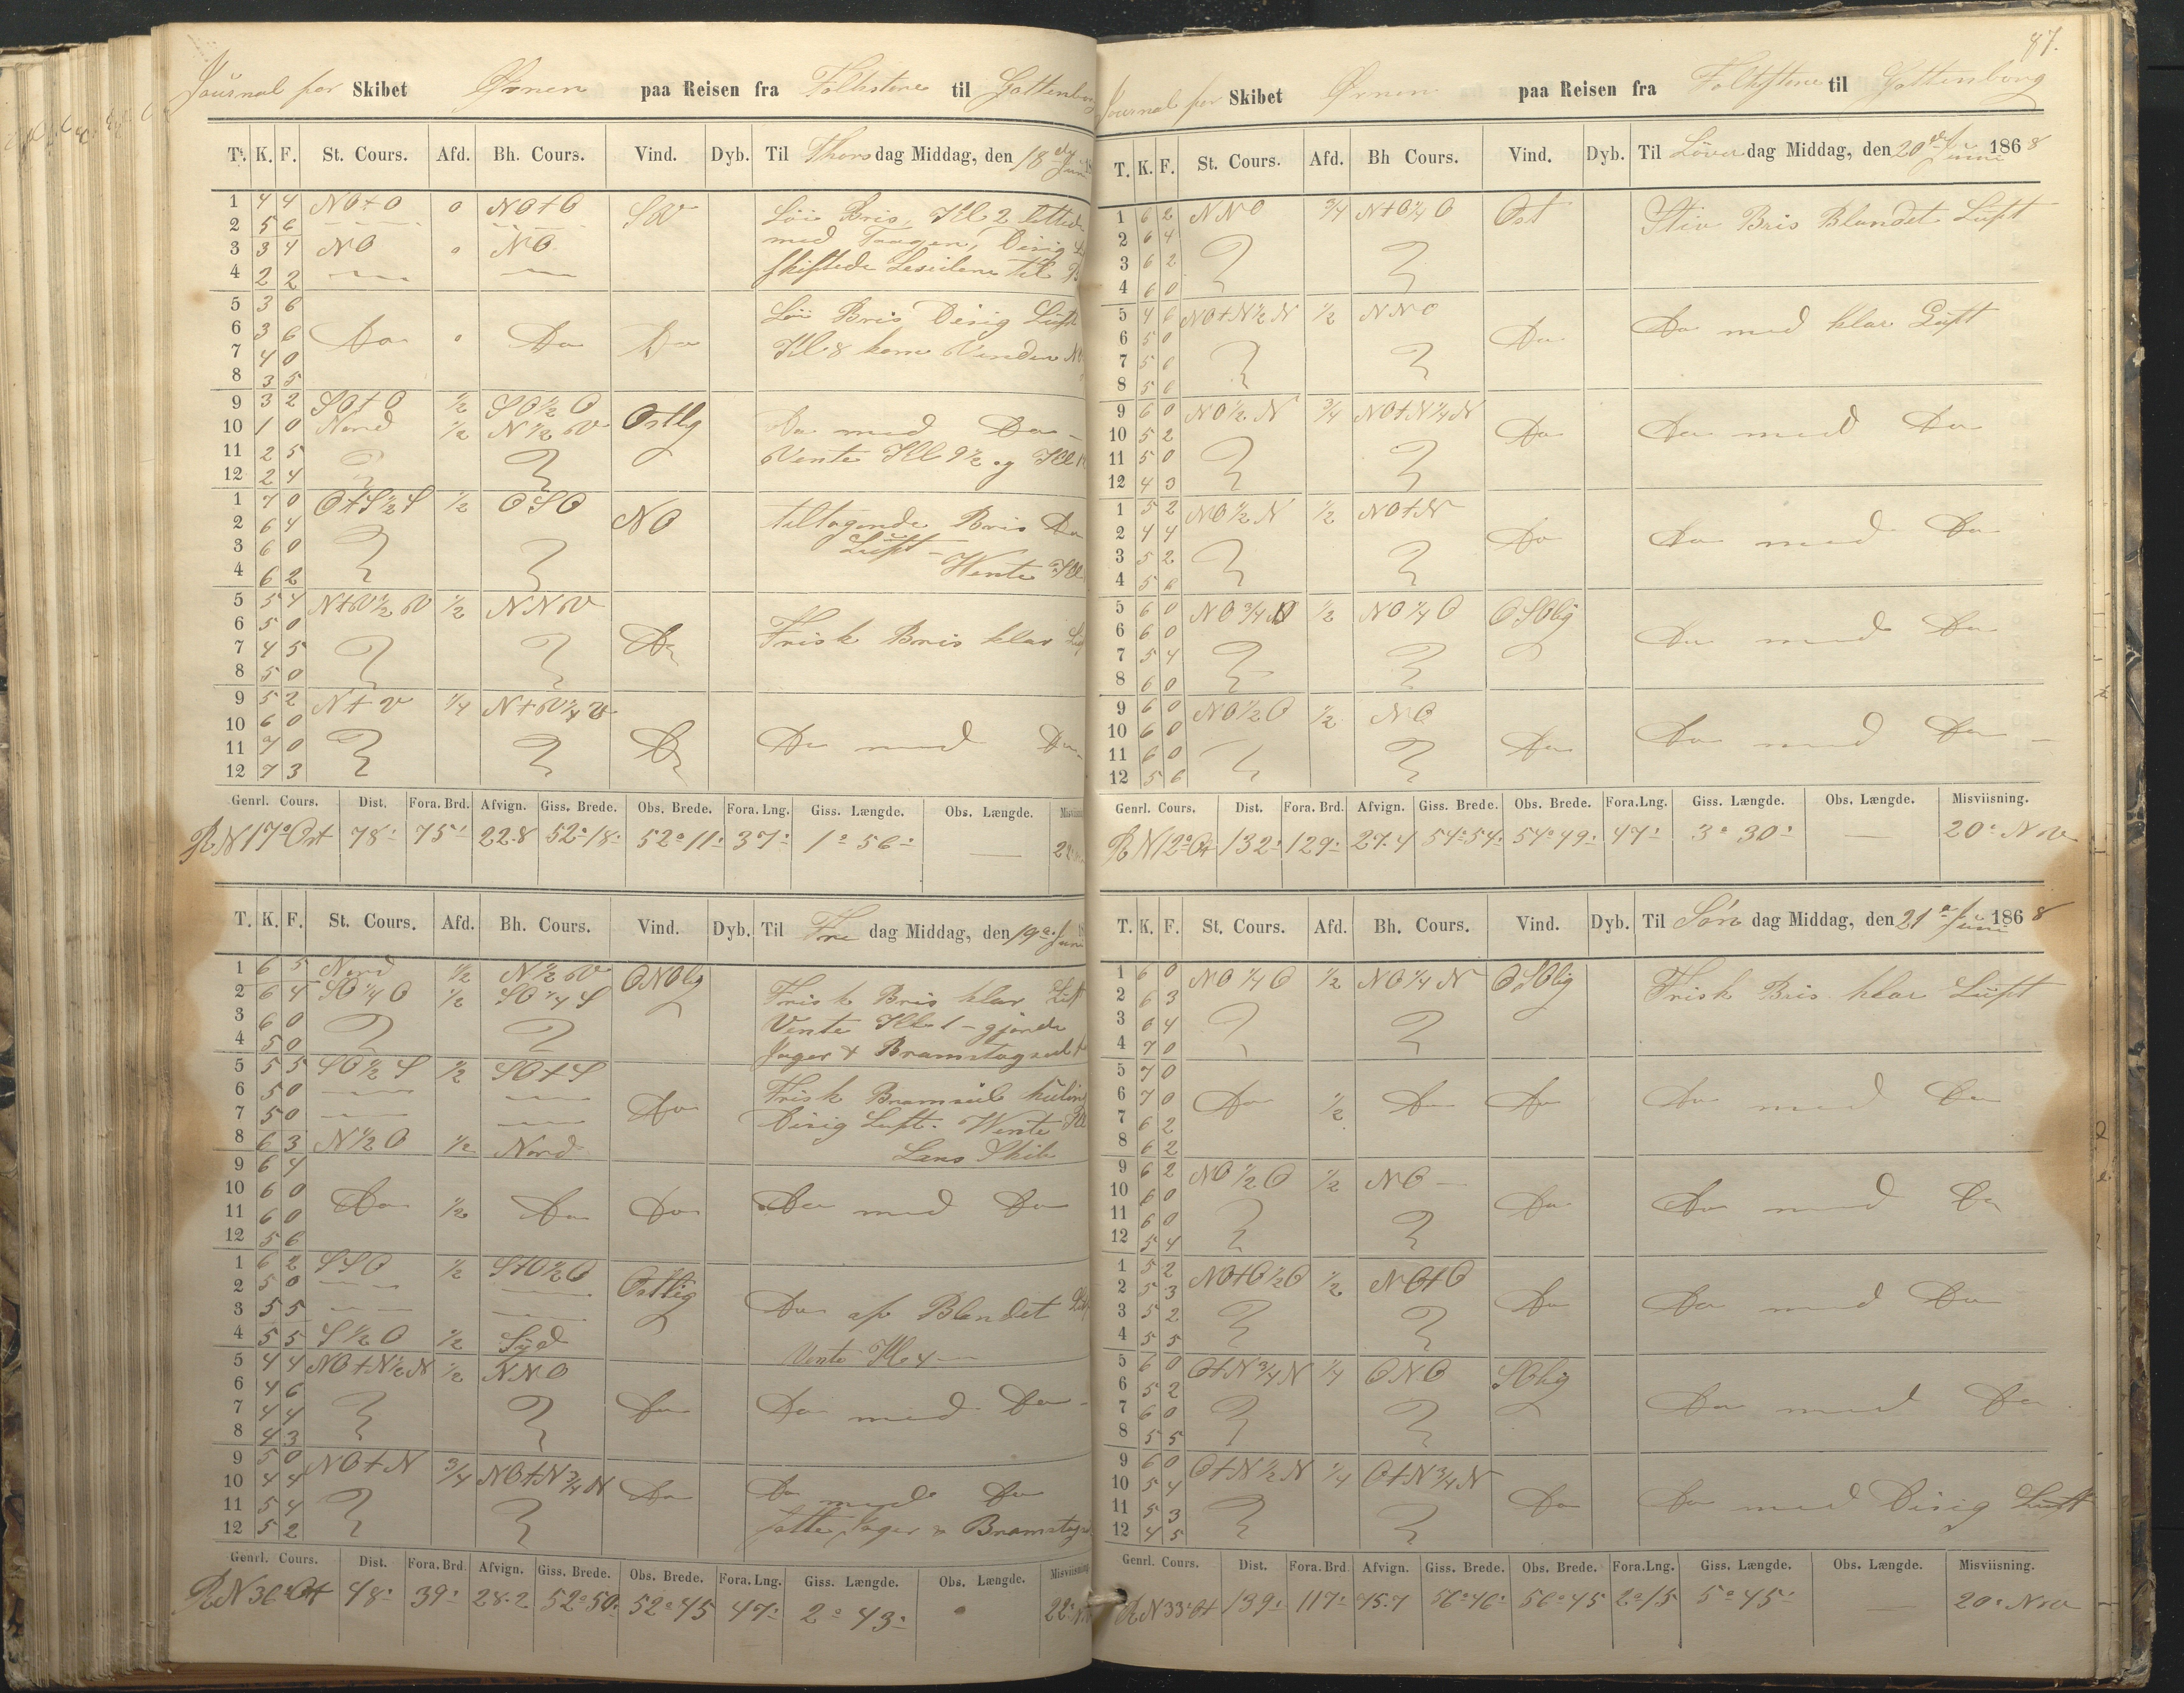 Journal for Skibet Ørnen paa Reisen fra Folkstone til Gottenborg
T. K. F. St. Cours. Afd. Bh. Cours. Vind. Dyb. Til Thorsdag Middag, den 18de Juni
1 4 4 NO+O 0 NO+O SW Löi Bris, Kl 2 lettede
2 5 6 med Taagen, Disig
3 3 4 NO 0 NO
4 2 2 skiftede Leseilene til
5 3 6 Löi Bris Disig Luft
6 3 6 Do 0 Do Do
7 4 0 Kl 8 kom Vinden
8 3 5
9 3 2 SO+O 1/2 SO1/2O Ostlig
10 1 0 Nord 1/2 N1/2W Do med Do
11 2 5 Vente Kl 9 1/2 og Kl
12 2 4
1 7 0 O+S1/2S 1/2 OSO NO tiltagende Bris Do
2 6 4 Luft
3 6 0
4 6 2 Wente Kl
5 5 4 N+W1/2W 1/2 NNW
6 5 0 Do Frisk Bris klar
7 4 5
8 5 0
9 5 2 N+W 1/4 N+W1/4W
10 6 0 Do Do med Do
11 7 0
12 7 3
Genrl. Cours. Dist. Fora. Brd. Afvign. Giss. Brede. Obs. Brede. Fora. Lng. Giss. Længde. Obs. Længde. Misviisning
R N17°Ost 78' 75' 22.8 52°18' 52°11' 37' 1°56' —
T. K. F. St. Cours. Afd. Bh. Cours. Vind. Dyb. Til Fredag Middag, den 19de Juni
1 6 5 Nord 1/2 N1/2W ONOlig Frisk Bris klar Luft
2 6 4 SO1/4O 1/2 SO1/4S
3 6 0 Vente Kl 1 - gjorde
4 5 0 Jager & Bramstagseil
5 5 5 SO1/2S 1/2 SO+S Frisk Bramseils kuling
6 5 0 Do
7 5 0 Disig Luft. Wente Kl
8 6 3 N1/2O 1/2 Nord Lens Skib
9 6 4
10 6 0 Do 1/2 Do Do Do med Do
11 6 0
12 5 6
1 6 2 SSO 1/2 S+O1/2O Ostlig
2 5 0
3 5 5 Do af Blandet
4 5 5 S1/2O 1/2 Syd Vente Kl 4
5 4 4 NO+N1/2N 1/2 NNO
6 4 6 Do Do med Do
7 4 4
8 4 3
9 5 0 NO+N 3/4 NO+N3/4N
10 4 4 Do Do med Do
11 5 4
12 5 2 Jager & Bramstags
Genrl. Cours. Dist. Fora. Brd. Afvign. Giss. Brede. Obs. Brede. Fora. Lng. Giss. Længde. Obs. Længde. Misviisning
R N36°Ost 48' 39' 28.2 52°50' 52°45 47' 2°43'
87.
Journal for Skibet Ørnen paa Reisen fra Folkstone til Gottenborg
T. K. F. St. Cours. Afd. Bh Cours. Vind. Dyb. Til Löverdag Middag, den 20de Juni 1868
1 6 2 NNO 3/4 N+O1/4O Ost Stiv Bris Blandet Luft
2 6 4
3 6 2
4 6 0
5 4 6 NO+N1/2N 1/2 NNO Do med klar Luft
6 5 0 Do
7 5 6
8 5 6
9 6 0 NO1/2N 3/4 NO+N1/4N
10 5 2 Do Do med Do
11 5 0
12 4 3
1 5 2 NO1/2N 1/2 NO+N
2 4 4 Do Do med Do
3 5 2
4 5 6
5 6 0 NO3/4N 1/2 NO1/4O OSOlig
6 6 0 Do med Do
7 5 4
8 6 0
9 6 0 NO1/2O 1/2 NO
10 6 0 Do Do med Do
11 6 0
12 5 6
Genrl. Cours. Dist. Fora. Brd. Afvign. Giss. Brede. Obs. Brede. Fora. Lng. Giss. Længde. Obs. Længde. Misviisning.
R N12°Ost 132' 129' 27.4 54°54' 54°49' 47' 3°30' — 20° NW
T. K. F. St. Cours. Afd. Bh. Cours. Vind. Dyb. Til Söndag Middag, den 21de Juni 1868
1 6 0 NO1/4O 1/2 NO1/4N OSOlig Frisk Bris klar Luft
2 6 3
3 6 4
4 7 0
5 7 0
6 7 0 Do 1/2 Do Do Do med Do
7 6 2
8 6 2
9 6 2 NO1/2O 1/2 NO
10 6 0 Do Do med Do
11 6 0
12 5 4
1 5 2 NO+O1/2O 1/2 NO+O
2 5 3 Do Do med Do
3 5 2
4 5 5
5 6 0 O+N3/4N 1/4 ONO SOlig
6 5 2 Do med Do
7 6 0
8 5 5
9 6 0 O+N1/2N 1/4 O+N3/4N
10 5 4 Do Do med Disig Luft
11 5 3
12 4 5
Genrl. Cours. Dist. Fora. Brd Afvign. Giss. Brede. Obs. Brede. Fora. Lng. Giss. Længde. Obs. Længde. Misviisning.
R N33°Ost 139' 117' 75.7 56°46' 56°45 2°15 5°45' — 20° NW